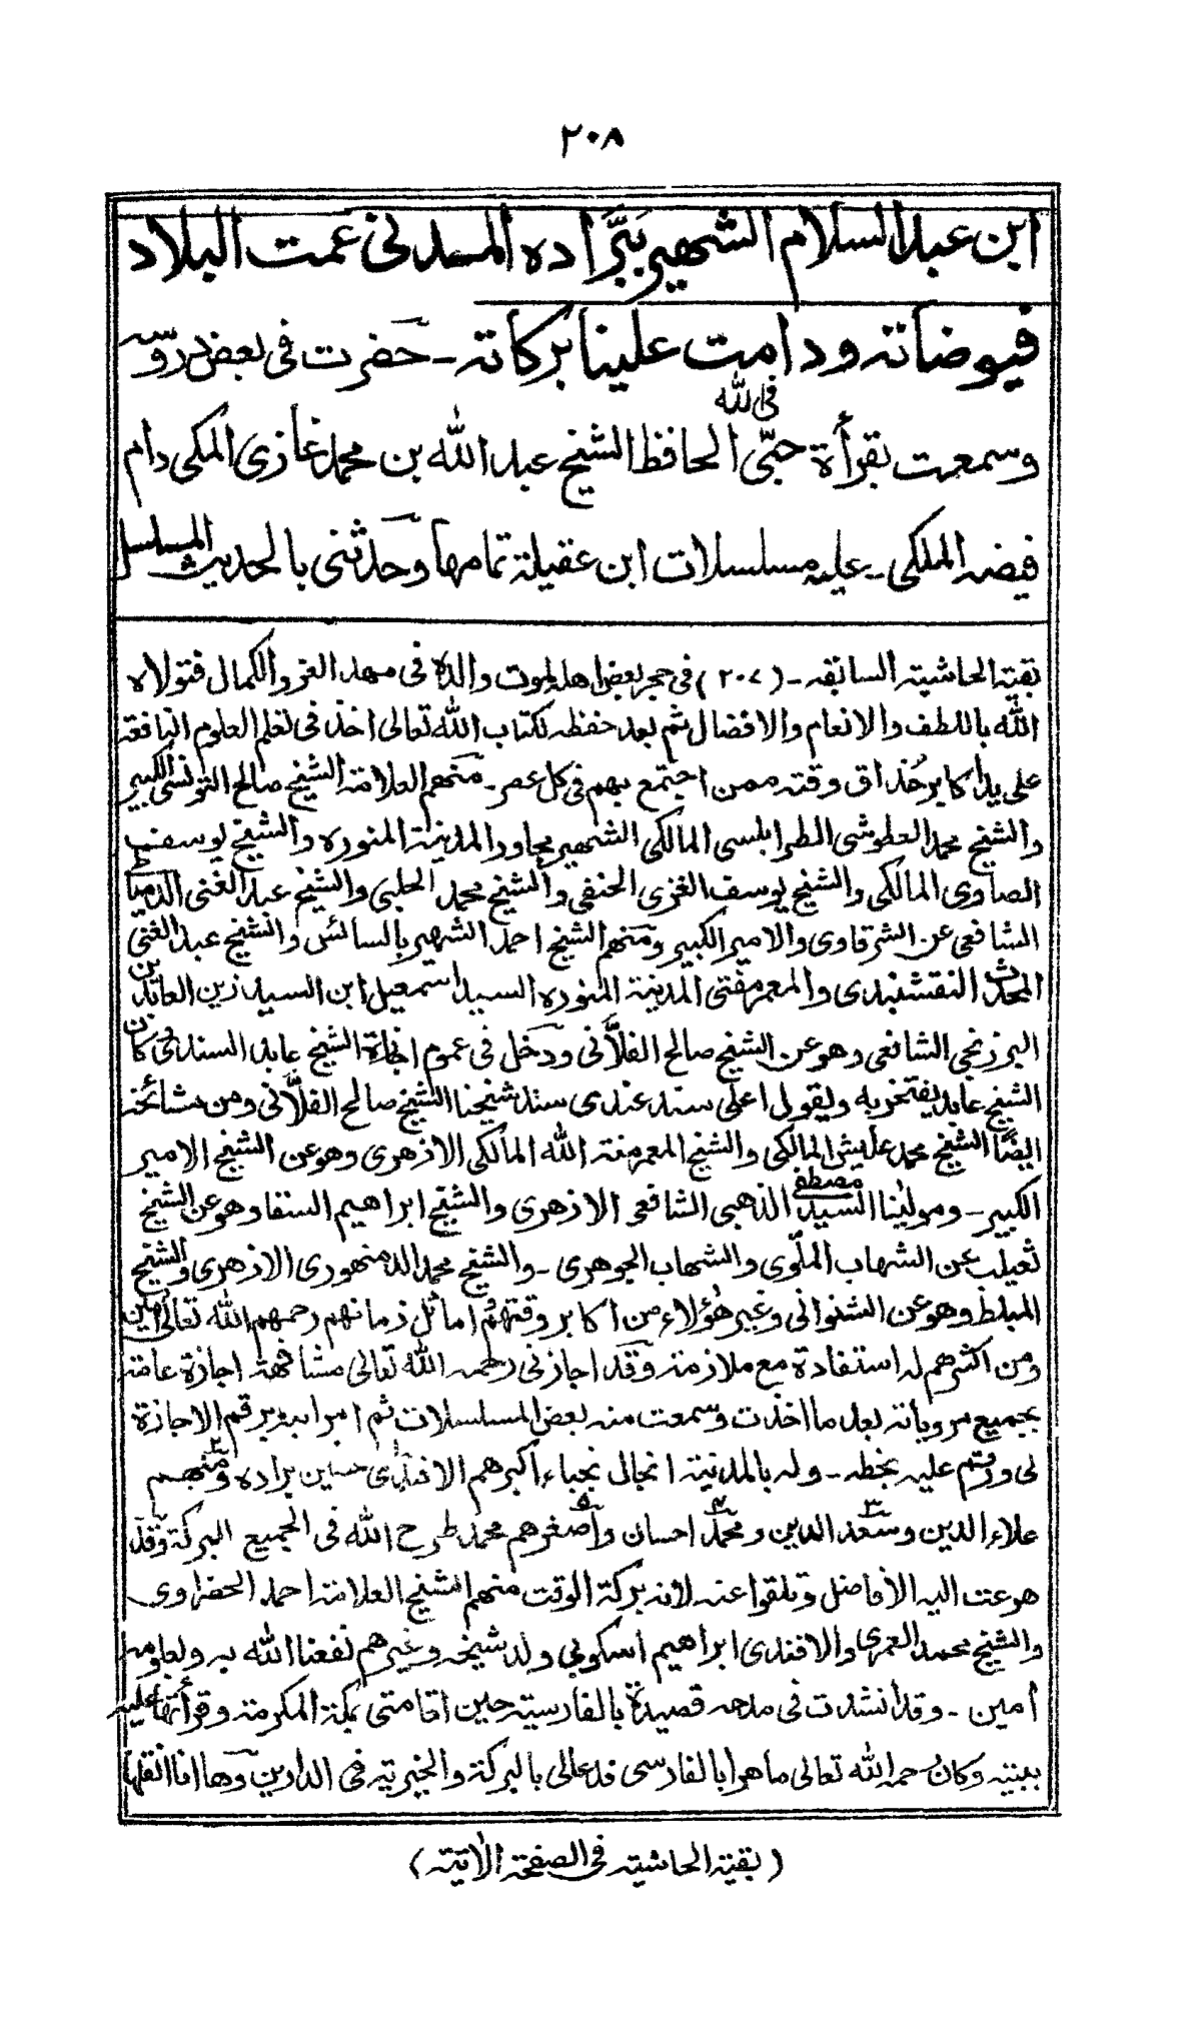 ٢٠٨
ابن عبد السلام الشهير ببَرَّاده المدنی عمت البلاد
فيوضاته ودامت علينا بركاته ـ حضرت فی بعض دروسه
وسمعت بقرأة حبّی فی الله الحافظ الشيخ عبد الله بن محمد غازی المکی دام
فيضه الملکی ـ عليه مسلسلات ابن عقيلة تمامها وحدثنی بالحديث المسلسل
بقية الحاشية السابقه ـ (٢٠٧) فی حجر بعض اهله لموت والده فی مهد العز والکمال فتولاه
الله باللطف والانعام والافضال ثم بعد حفظه لکتاب الله تعالی اخذ فی تعلم العلوم النافعة
علی يد اکابر حُذاق وقته ممن اجتمع بهم فی کل عصر ـ منهم العلامة الشيخ صالح التونسی الکبير
والشيخ محمد العطوشی الطرابلسی المالکی الشهير مجاور المدينة المنوره والشيخ يوسف
الصاوی المالکی والشيخ يوسف الغزی الحنفی والشيخ محمد الحلبی والشيخ عبد الغنی الدمياطی
الشافعی عن الشرقاوی والامير الکبير ومنهم الشيخ احمد الشهير بالسائس والشيخ عبد الغنی
المحدث النقشبندی والمعمر مفتی المدينة المنوره السيد اسمعيل ابن السيد زين العابدين
البرزنجی الشافعی وهو عن الشيخ صالح الفلّانی ودخل فی عموم اجازة الشيخ عابد السندی وکان
الشيخ عابد يفتخر به ويقول اعلی سند عندی سند شيخنا الشيخ صالح الفلّانی ومن مشائخه
ايضًا الشيخ محمد عليش المالکی والشيخ المعمر منة الله المالکی الازهری وهو عن الشيخ الامير
الکبير ـ ومولينا السيد مصطفی الذهبی الشافعی الازهری والشيخ ابراهيم السقا وهو عن الشيخ
ثعيلب عن الشهاب الملّوی والشهاب الجوهری ـ والشيخ محمد الدمنهوری الازهری والشيخ
المبلط وهو عن الشنوانی وغير هؤلاء من اکابر وقتهم واماثل زمانهم رحمهم الله تعالی امين
ومن اکثرهم له استفادة مع ملازمة وقد اجازنی رحمه الله تعالی مشافهة اجازة عامة
بجميع مروياته بعد ما اخذت وسمعت منه بعض المسلسلات ثم امر ابنه برقم الاجازة
لی ورقم عليه بخطه ـ وله بالمدينة انجال نجباء اکبرهم الافندی حسين براده ومنهم
علاء الدين وسعد الدين ومحمد احسان واصغرهم محمد طرح الله فی الجميع البرکة وقد
هرعت اليه الافاضل وتلقوا عنه لانه برکة الوقت منهم الشيخ العلامة احمد الحضراوی
والشيخ محمد العمری والافندی ابراهيم اسکوبی ولد شيخه وغيرهم نفعنا الله به وبعلومه
امين ـ وقد انشدت فی مدحه قصيدة بالفارسية حين اقامتی بمکة المکرمة وقرأتها عليه
ببيته وکان رحمه الله تعالی ماهرا بالفارسی فدعالی بالبرکة والخيرية فی الدارين وها انا انقلها
(بقية الحاشية فی الصفحة الاٰتية)